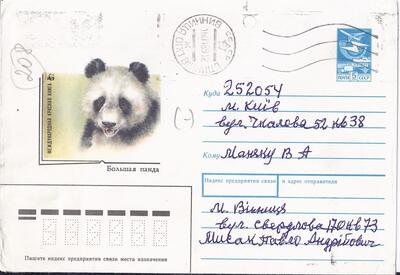 208
ВИННИЦА
ПОЧТА 5к СССР
МЕЖДУНАРОДНАЯ КРАСНАЯ КНИГА
Большая панда
Куда 252054
м. Київ
вул. Чкалова 52 кв 38
Кому Маняку В А
(-)
Индекс предприятия связи и адрес отправителя
м. Вінниця
вул. Свердлова 170 кв 73
Мисак Павло Андрійович
Пишите индекс предприятия связи места назначения